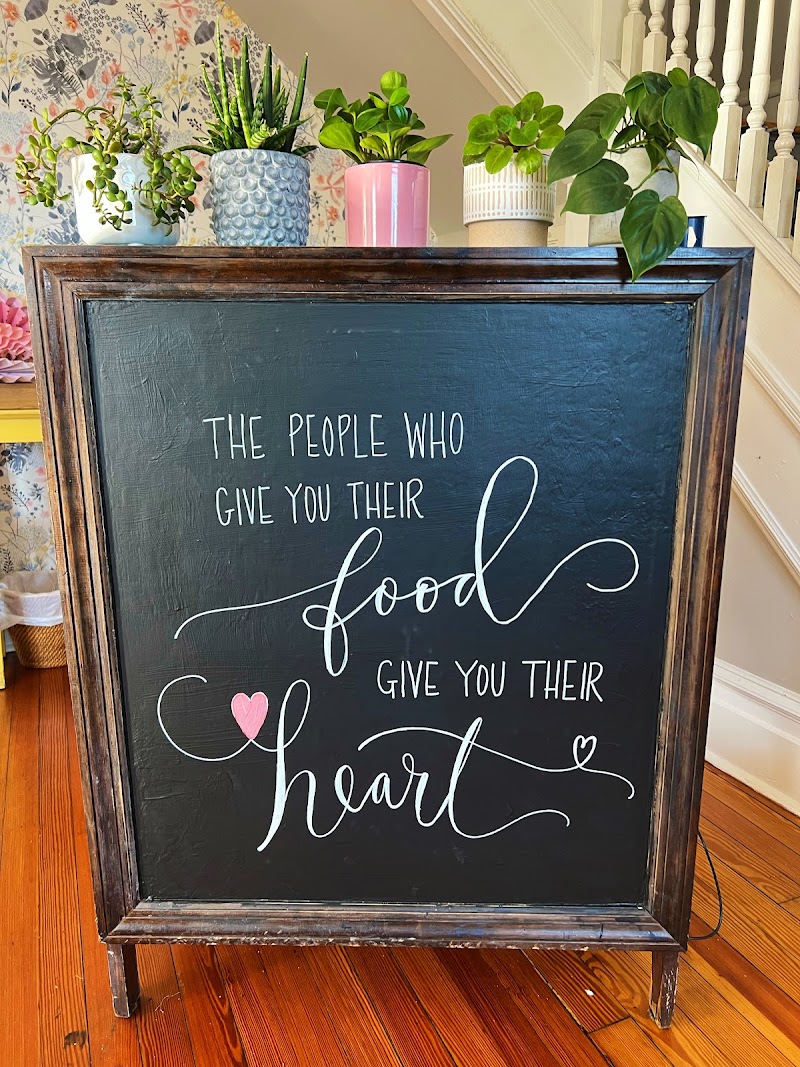 THE PEOPLE WHO
GIVE YOU THEIR
food
GIVE YOU THEIR
heart